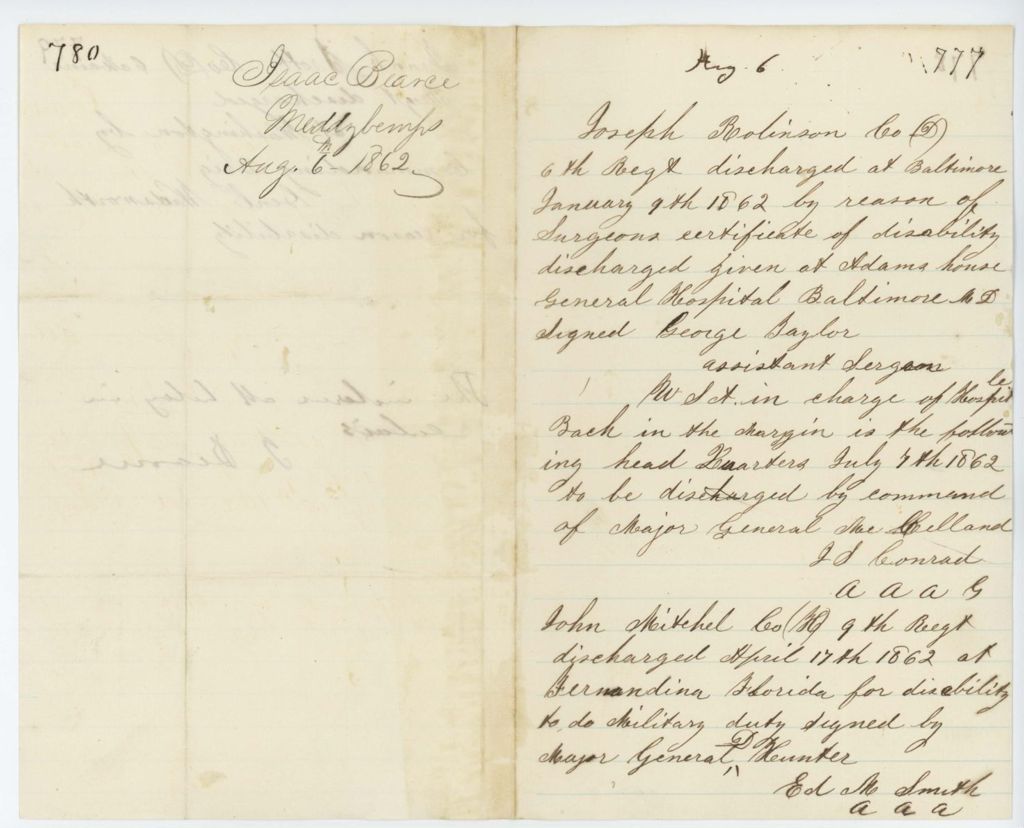 780
Isaac Pearce
Meddybemps
Aug. 6th 1862
777
Aug. 6
Joseph Rolinson Co (D)
6 th Regt discharged at Baltimore
January 9th 1862 by reason of
Surgeons certificate of disability
discharged given at Adams house
General Hospital Baltimore M D
Signed George Taylor
assistant Sergeon
W S A. in charge of Hospitle
Back in the Margin is the follow
ing head Quarters July 7th 1862
to be discharged by command
of Major General Mc Clelland
J S Conrad
A A A G
John Mitchel Co (H) 9 th Regt
discharged April 17th 1862 at
Fernandina Florida for disebility
to do Military duty Signed by
Major General D Hunter
Ed M Smith
a a a